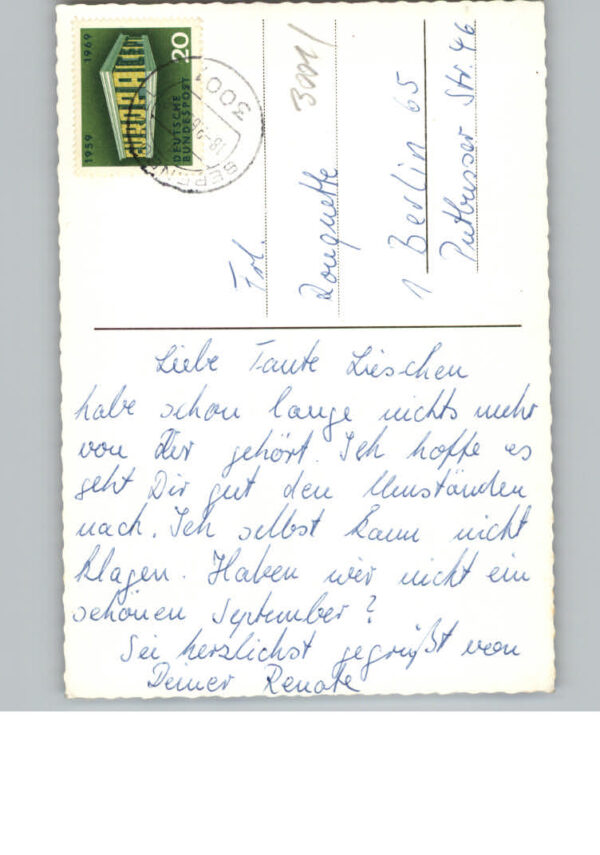 1959 1969
EUROPA CEPT
20
DEUTSCHE
BUNDESPOST
3001
18.-9.6
3001
Frl.
Ronquette
1 Berlin 65
Putbusser Str. 46
Liebe Tante Lieschen
habe schon lange nichts mehr
von Dir gehört. Ich hoffe es
geht Dir gut den Umständen
nach. Ich selbst kann nicht
klagen. Haben wir nicht ein
schönen September?
Sei herzlichst gegrüßt von
Deiner Renate